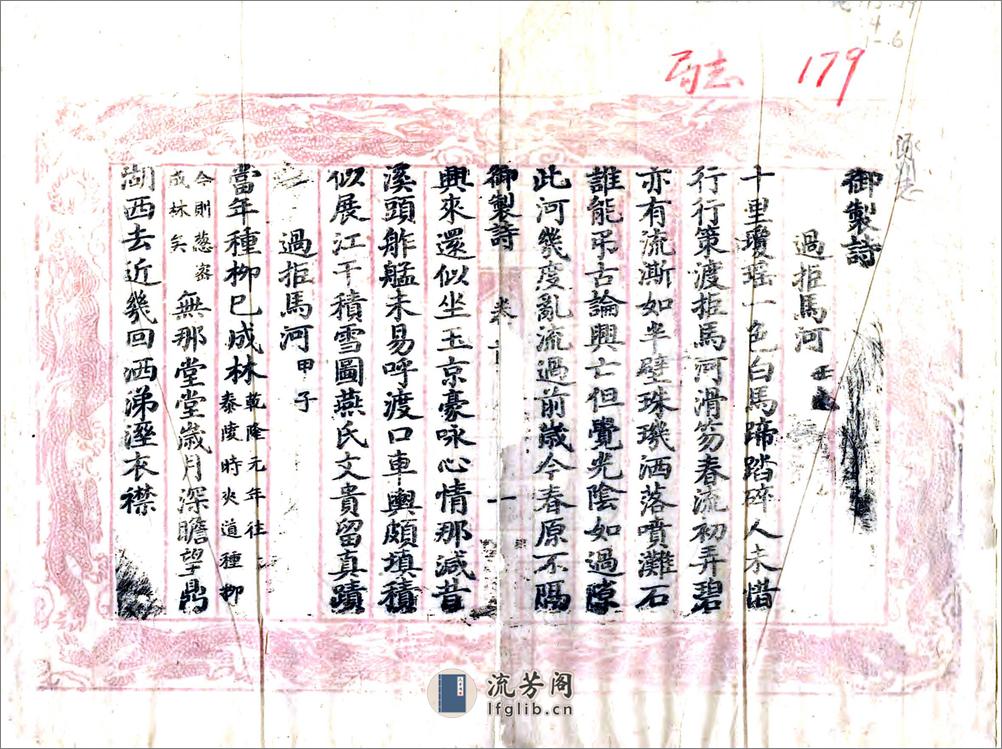 179
御製詩
過拒馬河
十里瓊瑶一色白馬蹄踏碎人未惜
行行策渡拒馬河滑笏春流初弄碧
亦有流澌如半璧珠璣洒落噴灘石
誰能弔古論興亡但覺光陰如過隙
此河幾度亂流過前歲今春原不隔
御製詩 卷首 一
興來還似坐玉京豪咏心情那減昔
溪頭舴艋未易呼渡口車輿頗填積
似展江干積雪圖燕氏文貴留真蹟
過拒馬河 甲子
當年種柳已成林 乾隆元年往
泰陵時夾道種柳
今則葱密
成林矣 無那堂堂歲月深瞻望鼎
湖西去近幾回洒涕溼衣襟
流芳阁
lfglib.cn